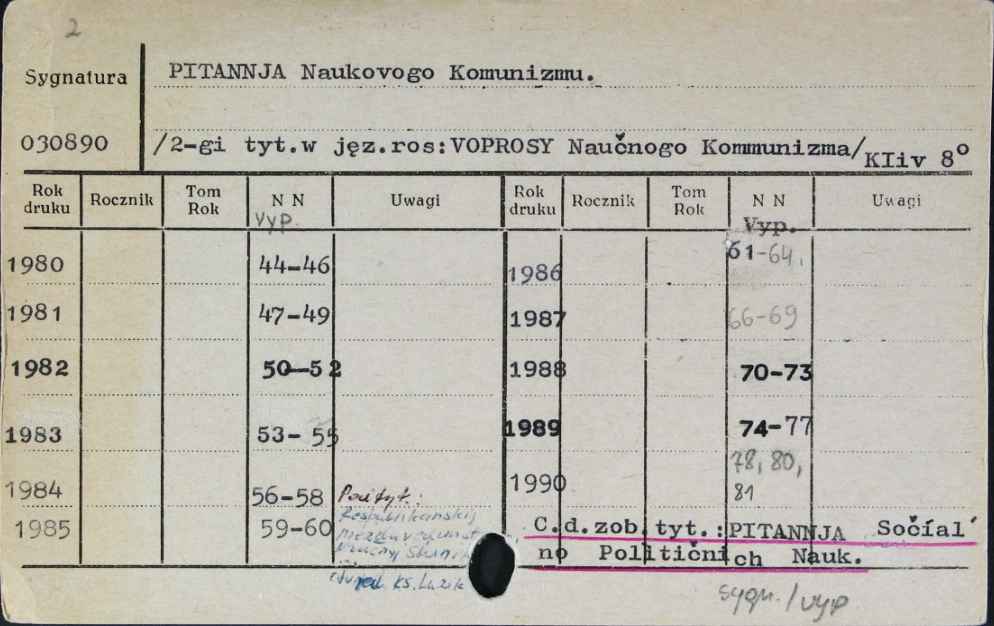 2
Sygnatura
PITANNJA Naukovogo Komunizmu.
030890
/2-gi tyt.w jęz.ros:VOPROSY Naučnogo Kommunizma/
KIiv 8°
Rok druku Rocznik Tom Rok N N Uwagi Rok druku Rocznik Tom Rok N N Uwagi
Vyp. Vyp.
1980 44-46 1986 61-64,
1981 47-49 1987 66-69
1982 50-52 1988 70-73
1983 53-55 1989 74-77
1984 56-58 1990 78, 80,
81
1985 59-60
C.d.zob.tyt.:PITANNJA Sočíal'
no Političnich Nauk.
sygn./vyp